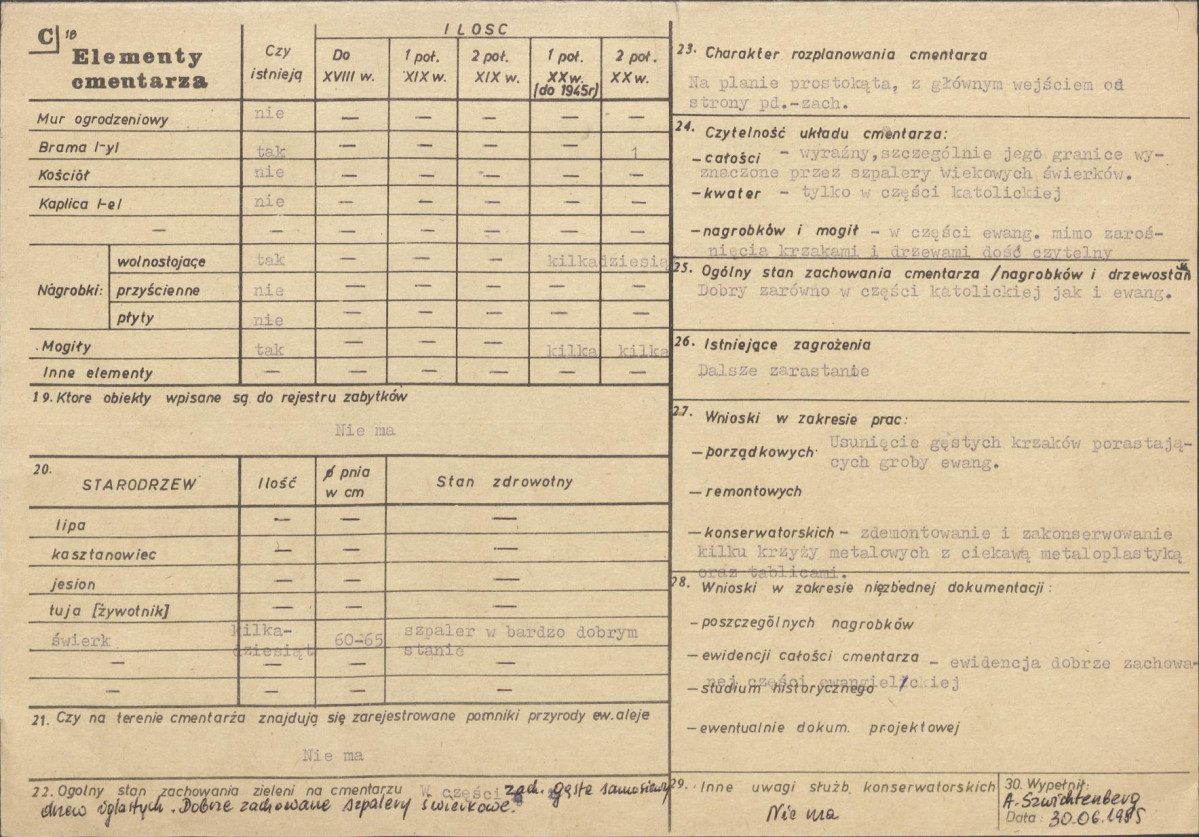 C 18
Elementy cmentarza
Czy istnieją
ILOSC
Do XVIII w.
1 poł. XIX w.
2 poł. XIX w.
1 poł. XX w. (do 1945r)
2 poł. XX w.
Mur ogrodzeniowy nie — — — — —
Brama I-yl tak — — — — 1
Kościół nie — — — — —
Kaplica I-el nie — — — — —
— — — — — —
Nagrobki:
wolnostojące tak — — — kilkadziesią
przyścienne nie — — — — —
płyty nie — — — — —
Mogiły tak — — — kilka kilka
Inne elementy — — — — — —
19. Ktore obiekty wpisane są do rejestru zabytków
Nie ma
20. STARODRZEW Ilość ø pnia w cm Stan zdrowotny
lipa — — —
kasztanowiec — — —
jesion — — —
tuja [żywotnik] — — —
świerk kilka-dziesiąt 60-65 szpaler w bardzo dobrym
stanie
— — — —
— — — —
21. Czy na terenie cmentarza znajdują się zarejestrowane pomniki przyrody ew. aleje
Nie ma
22. Ogolny stan zachowania zieleni na cmentarzu W części zach. gęste samosiewy
drzew iglastych. Dobrze zachowane szpalery świerkowe.
23. Charakter rozplanowania cmentarza
Na planie prostokąta, z głównym wejściem od
strony pd.-zach.
24. Czytelność układu cmentarza:
— całości - wyraźny, szczególnie jego granice wy-
znaczone przez szpalery wiekowych świerków.
— kwater - tylko w części katolickiej
— nagrobków i mogił - w części ewang. mimo zaroś-
nięcia krzakami i drzewami dość czytelny
25. Ogólny stan zachowania cmentarza /nagrobków i drzewostan
Dobry zarówno w części katolickiej jak i ewang.
26. Istniejące zagrożenia
Dalsze zarastanie
27. Wnioski w zakresie prac:
— porządkowych Usunięcie gęstych krzaków porastają-
cych groby ewang.
— remontowych
— konserwatorskich - zdemontowanie i zakonserwowanie
kilku krzyży metalowych z ciekawą metaloplastyką
oraz tablicami.
28. Wnioski w zakresie niezbędnej dokumentacji:
— poszczególnych nagrobków
— ewidencji całości cmentarza - ewidencja dobrze zachowa-
nej części ewangielickiej
— studium historycznego
— ewentualnie dokum. projektowej
29. Inne uwagi służb konserwatorskich
Nie ma
30. Wypełnił:
A. Szwichtenberg
Data: 30.06.1985